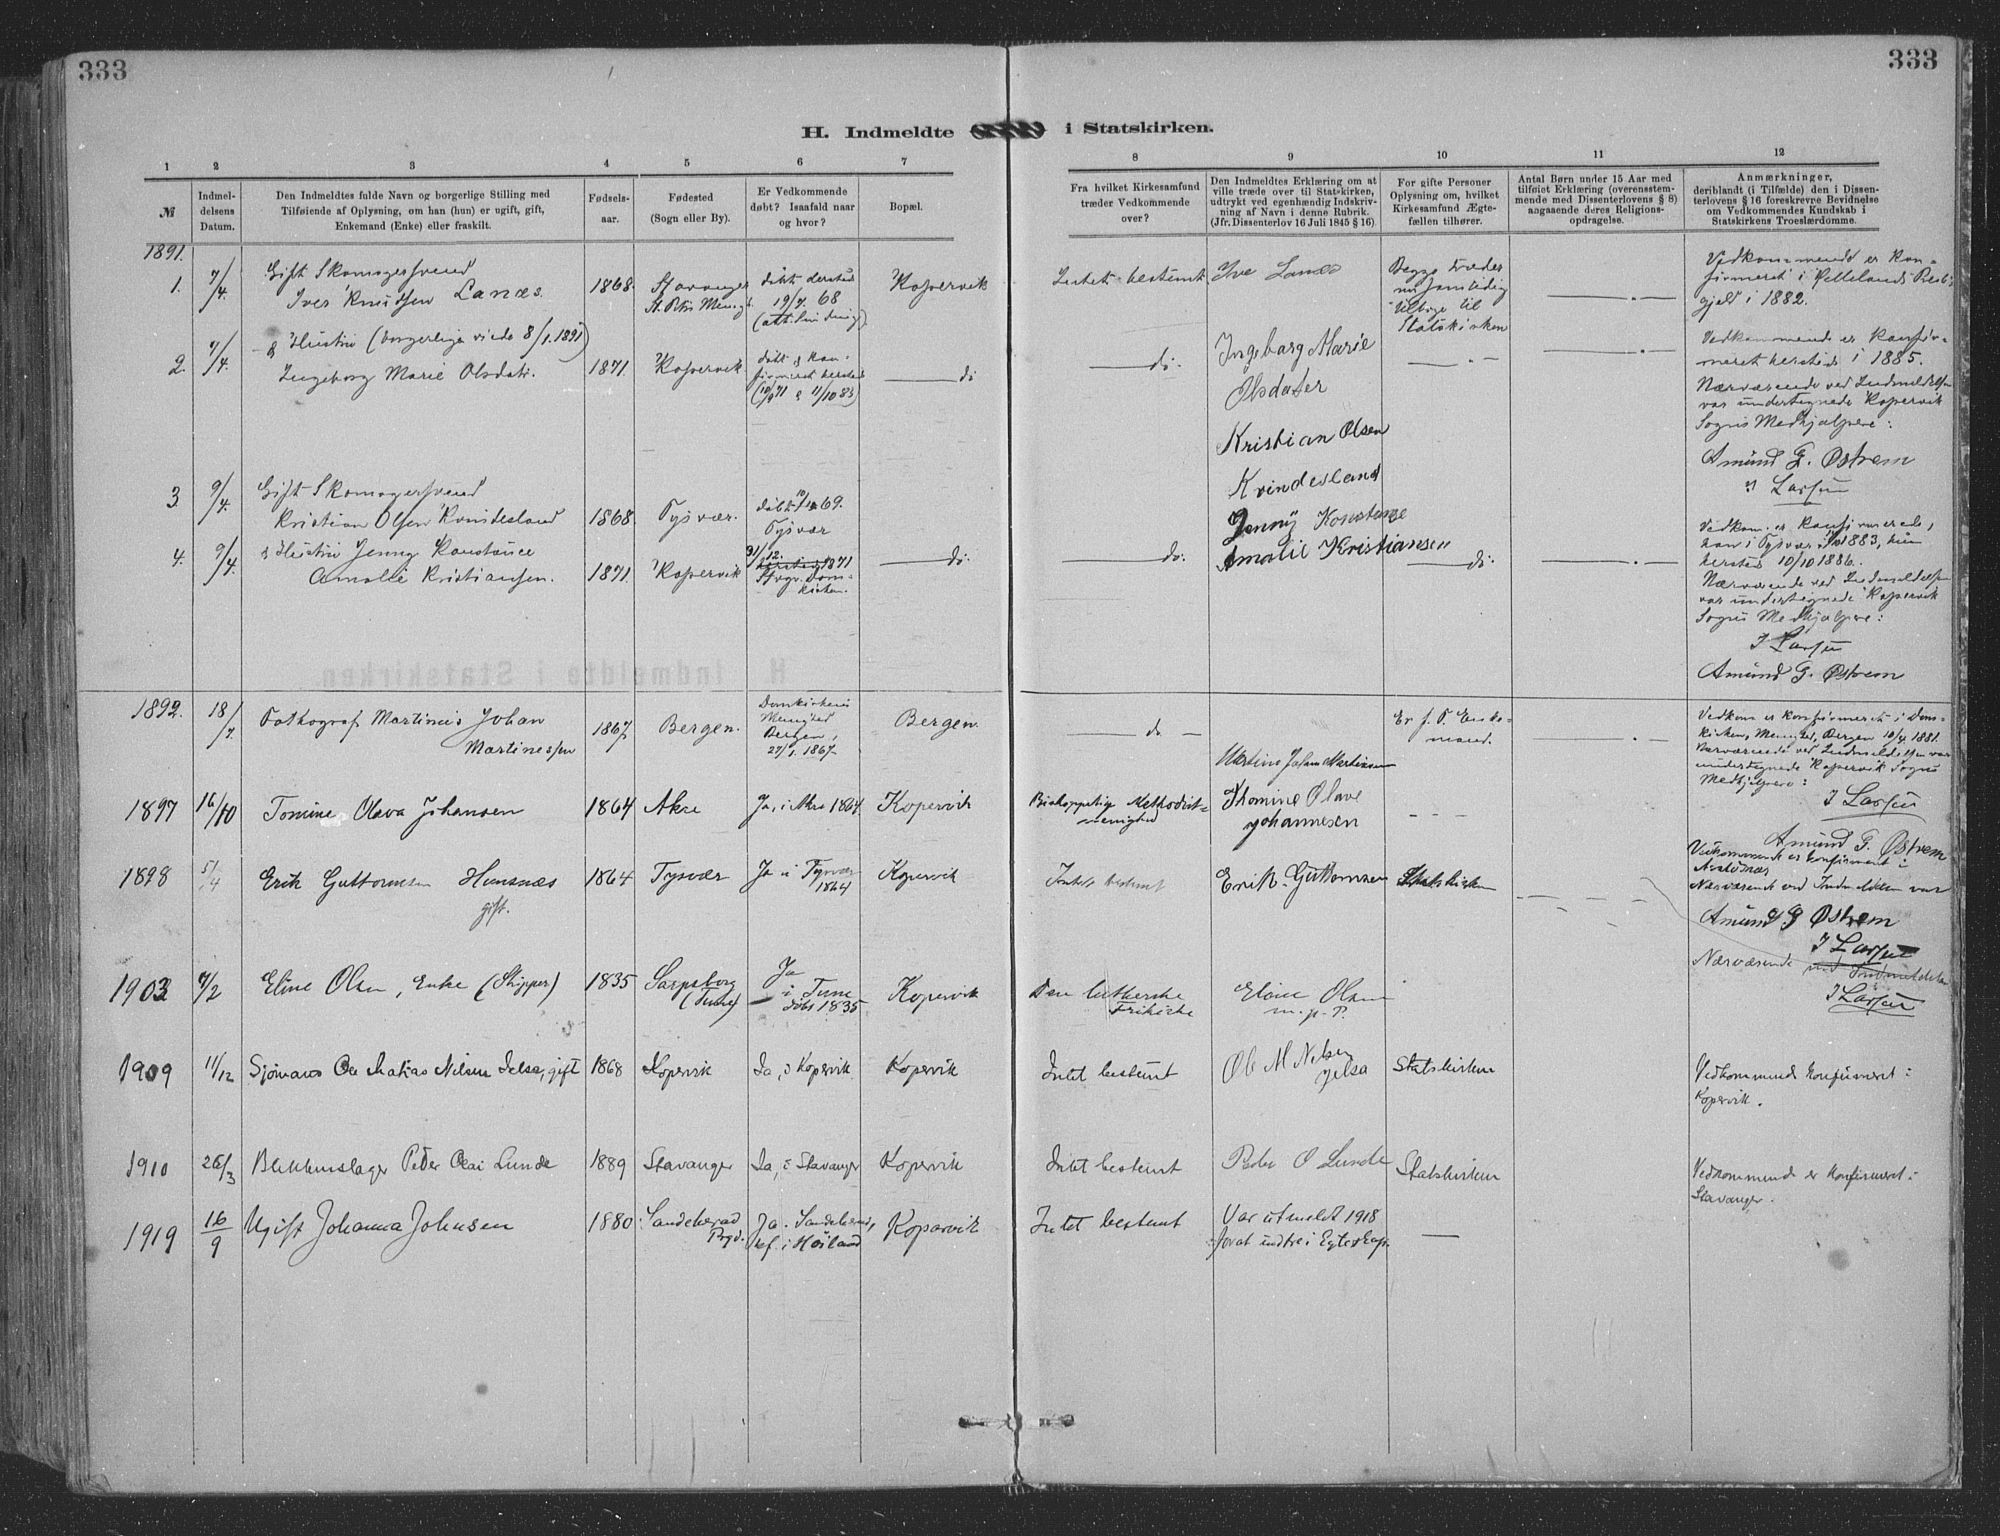 333
333
H. Indmeldte i Statskirken.
1 2 3 4 5 6 7 8 9 10 11 12
№
Indmel-
delsens
Datum.
Den Indmeldtes fulde Navn og borgerlige Stilling med
Tilføiende af Oplysning, om han (hun) er ugift, gift,
Enkemand (Enke) eller fraskilt.
Fødsels-
aar.
Fødested
(Sogn eller By).
Er Vedkommende
døbt? Isaafald naar
og hvor?
Bopæl.
Fra hvilket Kirkesamfund
træder Vedkommende
over?
Den Indmeldtes Erklæring om at
ville træde over til Statskirken,
udtrykt ved egenhændig Indskriv-
ning af Navn i denne Rubrik.
(Jfr. Dissenterlov 16 Juli 1845 § 16)
For gifte Personer
Oplysning om, hvilket
Kirkesamfund Ægte-
fællen tilhører.
Antal Børn under 15 Aar med
tilføiet Erklæring (overensstem-
mende med Dissenterlovens § 8)
aagaaende deres Religions-
opdragelse.
Anmærkninger,
deriblandt (i Tilfælde) den i Dissen-
terlovens § 16 foreskrevne Bevidnelse
om Vedkommendes Kundskab i
Statskirkens Troeslærdomme.
1891.
1. 7/4. Gift Skomagersvend
Iver Knudsen Lanæs. 1868. Stavanger
St. Petri Menigh.
døbt dersteds
19/7 68
Kopervik
Intet bestemt
Begge træder
nu samtidig
tilbage til
Statskirken
Vedkommende er kon-
firmeret i
gjeld i 1882.
2. 7/4. & Hustru (borgerlig viede 8/1 1891)
Ingeborg Marie Olsdatr. 1871. Kopervik
døbt & kon-
firmeret hersteds
do
do.
Ingeborg Marie
Olsdater
Vedkommende er konfir-
meret hersteds i 1885.
Nærværende ved Indmeldelsen
var undertegnede Kopervik
Sogns Medhjælpere:
Amund G. Østrem
J Larsen
3. 9/4. Gift Skomagersvend
Kristian Olsen Kvindesland 1868. Tysvær.
Tysvær
Kristian Olsen
Kvindesland
4. 9/4. & Hustru Jenny Konstance
Amalie Kristiansen. 1871. Kopervik
31/12. 1871
Dom-
kirken.
do.
do.
Jenny Konstanse
Amalie Kristiansen
do.
Vedkom. er konfirmerede,
han i Tysvær 1883, hun
hersteds 10/10 1886.
Nærværende ved Indmeldelsen
var undertegnede Kopervik
Sogns Medhjælpere:
J Larsen
Amund G. Østrem
1892. 18/7. Fotograf Martinius Johan
Martinessen 1867. Bergen.
Domkirkens
Menighed
Bergen,
27/1. 1867.
Bergen.
do
Martinius Johan Martinesen
Er f. T. Enke-
mand.
Vedkom er konfirmeret i Dom-
kirkens Menighed, Bergen 10/4 1881.
Nærværende ved Indmeldelsen var
undertegnede Kopervik Sogns
Medhjælpere:
J Larsen
Amund G. Østrem
1897 16/10 Tomine Olava Johansen 1864 Akre Ja, i Akre 1864 Kopervik
Biskoppelig Methodist-
menighed
Thomine Olave
Johannesen
1898 5/4 Erik Guttormsen Hunsnæs
gift. 1864 Tysvær Ja i Tysvær
1864 Kopervik Intet bestemt Erik Guttormsen Statskirken
Vedkommende er konfirmeret i
Nærværende ved Indmeldelsen var
Amund G Østrem
J Larsen
1903 7/2 Eline Olsen, Enke (Skipper) 1835 Sarpsborg
(Tune)
Ja
i Tune
døbt 1835 Kopervik
Den lutherske
Frikirke
Eline Olsen
m. p. P.
Nærværende ved Indmeldelsen
J Larsen
1909 11/12 Sjømand Ole Matias Nilsen Jelsa, gift 1868 Kopervik Ja, i Kopervik Kopervik Intet bestemt Ole M Nilsen
Jelsa
Statskirken
Vedkommende konfirmeret i
Kopervik.
1910 26/3 Blikkenslager Peder Olai Lunde 1889 Stavanger Ja, i Stavanger Kopervik Intet bestemt Peder O Lunde Statskirken
Vedkommende er konfirmeret i
Stavanger.
1919 16/9 Ugift Johanna Johnsen 1880 Sandeherad
Prgd.
Ja i Sandeherad,
kf. i Høiland Kopervik Intet bestemt Var utmeldt 1918
forat indtre i Egteskap.